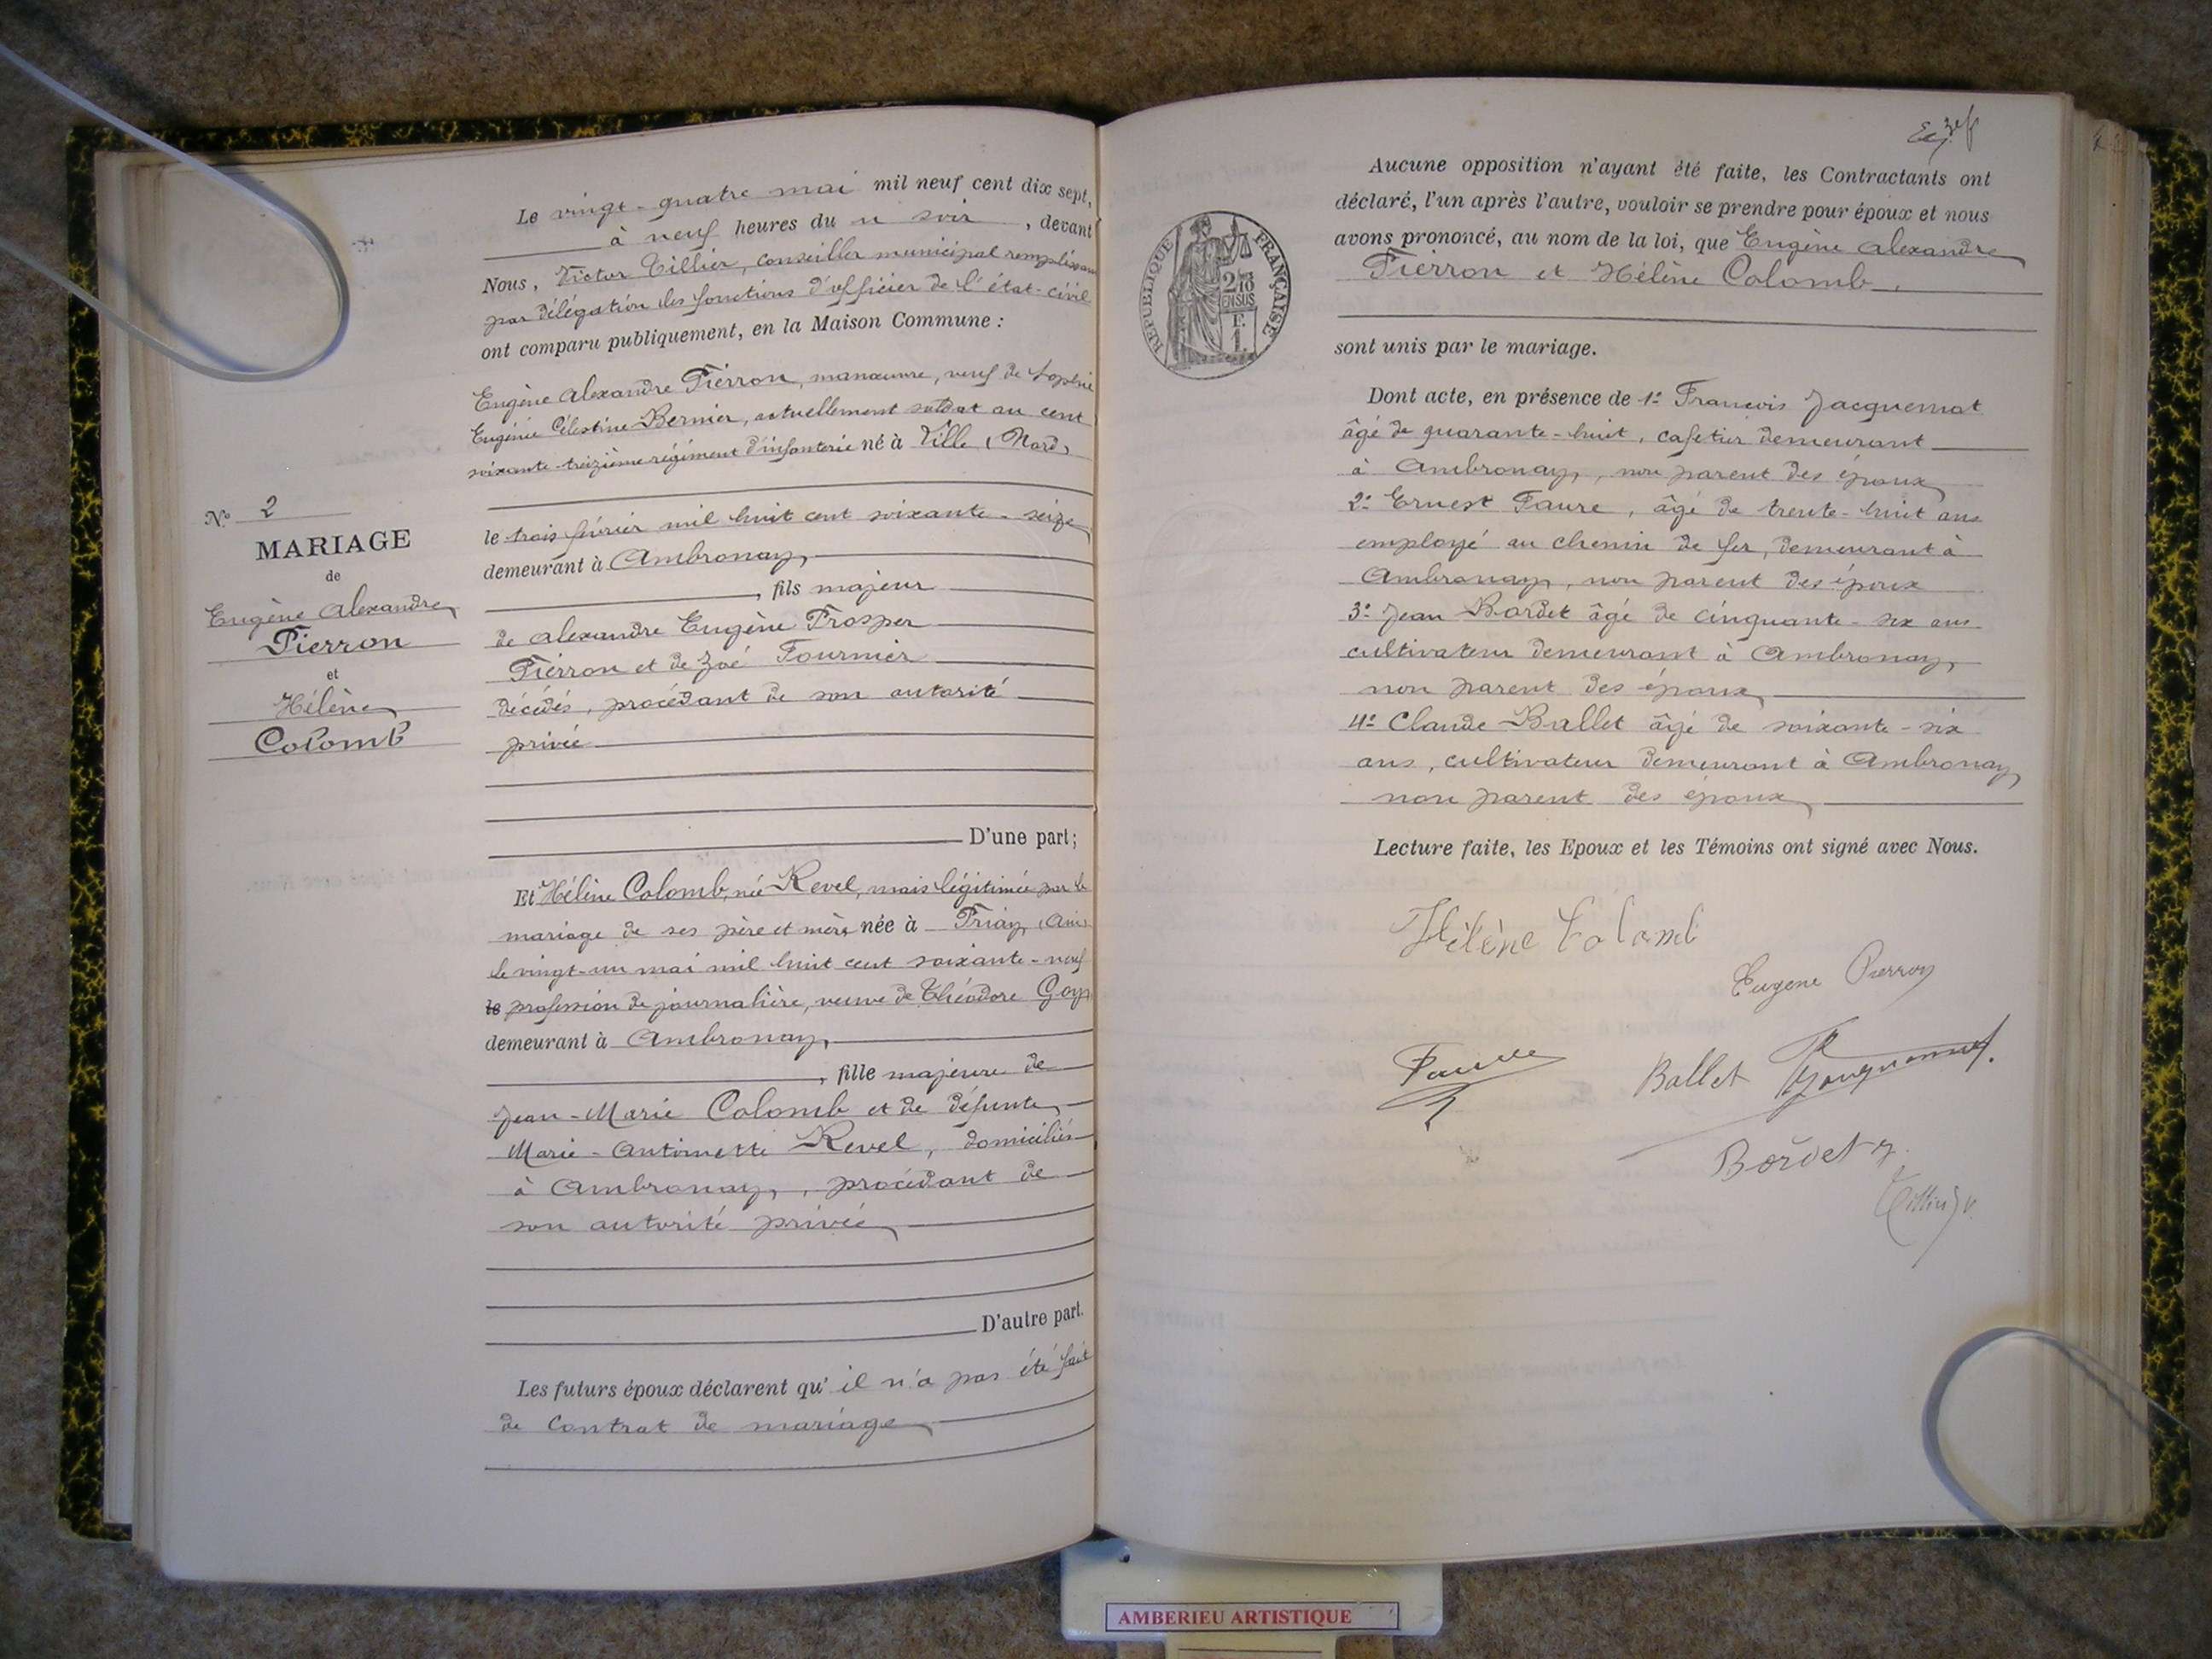 Le vingt-quatre mai mil neuf cent dix sept,
à neuf heures du soir, devant
Nous, Victor Tillier, conseiller municipal remplissant
par délégation les fonctions d'officier de l'état-civil
ont comparu publiquement, en la Maison Commune :
Eugène Alexandre Pierron, manœuvre, veuf de Sophie
Eugénie Célestine Bernier, actuellement soldat au cent
soixante-treizième régiment d'infanterie né à Lille (Nord)
le trois février mil huit cent soixante-seize
demeurant à Ambronay,
, fils majeur
de Alexandre Eugène Prosper
Pierron et de Zoé Fournier
décédés, procédant de son autorité
privée
D'une part;
N° 2
MARIAGE
de
Eugène Alexandre
Pierron
et
Hélène
Colomb
Et Hélène Colomb, née Revel, mais légitimée par le
mariage de ses père et mère, née à Priay, (Ain)
le vingt-un mai mil huit cent soixante-neuf
profession de journalière, veuve de Théodore Goy
demeurant à Ambronay,
, fille majeure de
Jean-Marie Colomb et de défunte
Marie-Antoinette Revel, domiciliés
à Ambronay, , procédant de
son autorité privée
D'autre part.
Les futurs époux déclarent qu'il n'a pas été fait
de contrat de mariage
Aucune opposition n'ayant été faite, les Contractants ont
déclaré, l'un après l'autre, vouloir se prendre pour époux et nous
avons prononcé, au nom de la loi, que Eugène Alexandre
Pierron et Hélène Colomb,
sont unis par le mariage.
RÉPUBLIQUE FRANÇAISE
2/10
EN SUS
F.
1.
Dont acte, en présence de 1° François Jacquemot
âgé de quarante-huit, cafetier demeurant
à Ambronay, , non parent des époux
2° Ernest Faure, âgé de trente-huit ans
employé au chemin de fer, demeurant à
Ambronay, non parent des époux
3° Jean Bordet âgé de cinquante-six ans
cultivateur demeurant à Ambronay,
non parent des époux
4° Claude Ballet âgé de soixante-six
ans, cultivateur demeurant à Ambronay,
non parent des époux
Lecture faite, les Epoux et les Témoins ont signé avec Nous.
Hélène Colomb
Eugene Pierron
Faure
Ballet
Bordet J.
Tillier V.
AMBERIEU ARTISTIQUE